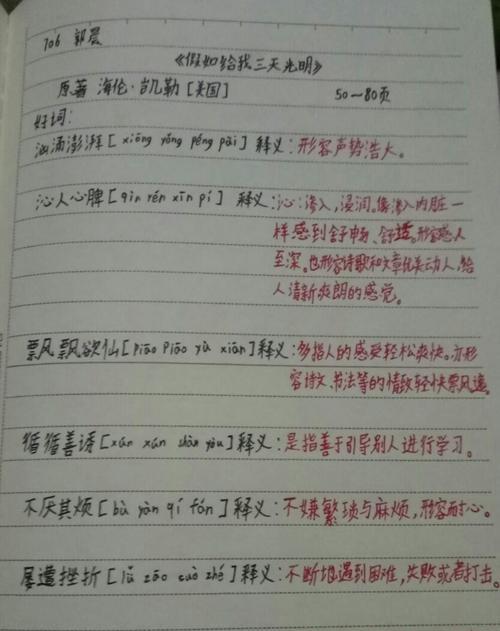 706 郭晨
《假如给我三天光明》
原著 海伦·凯勒[美国] 50—80页
好词:
汹涌澎湃[xiōng yǒng péng pài]释义:形容声势浩大。
沁人心脾[qìn rén xīn pí] 释义:沁:渗入,浸润。像渗入内脏一
样感到舒畅、舒适。形容感人
至深。也形容诗歌和文章优美动人,给
人清新爽朗的感觉。
飘风飘欲仙[piāo piāo yù xiān]释义:多指人的感受轻松爽快。亦形
容诗文、书法等的情致轻快飘风逸。
循循善诱[xún xún shàn yòu]释义:是指善于引导别人进行学习。
不厌其烦[bù yàn qí fán]释义:不嫌繁琐与麻烦,形容耐心。
屡遭挫折[lǚ zāo cuò zhé]释义:不断地遇到困难,失败或者打击。